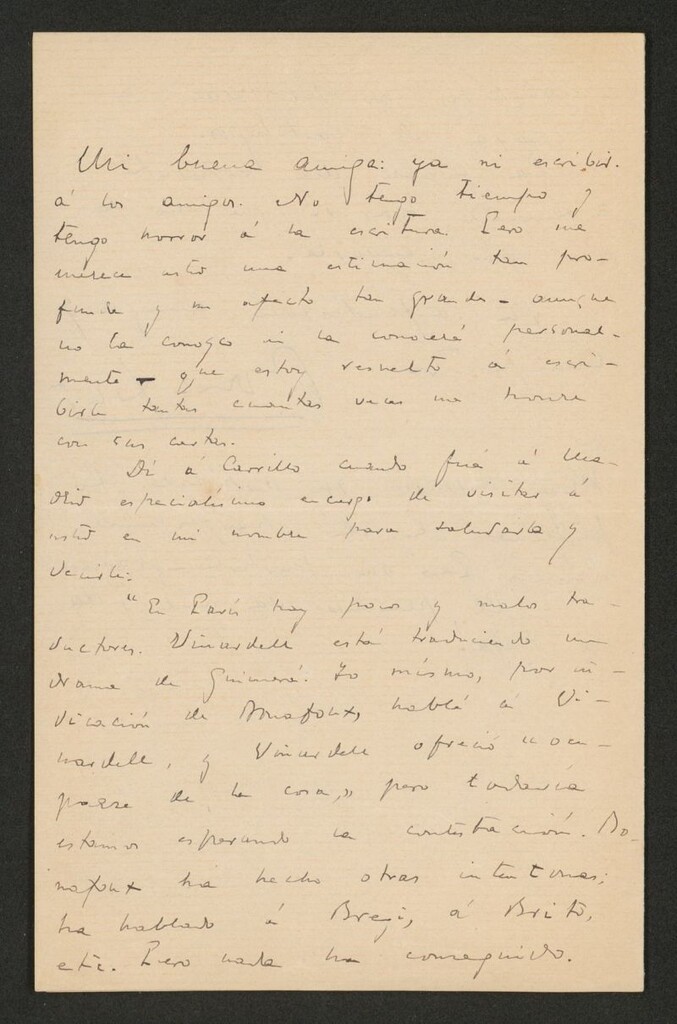 Mi buena amiga: ya ni escribir
á los amigos. No tengo tiempo y
tengo horror á la escritura. Pero me
merece usted una estimación tan pro-
funda y un afecto tan grande - aunque
no la conozco ni la conoceré personal-
mente - que estoy resuelto á escri-
birle tantas cuantas veces me honre
con sus cartas.
Dí á Carrillo cuando fué á Ma-
drid especialísimo encargo de visitar á
usted en mi nombre para saludarla y
decirle:
"En París hay pocos y malos tra-
ductores. Vinardell está traduciendo un
drama de Guimerá. Yo mismo, por in-
dicación de Bonafoux, hablé á Vi-
nardell, y Vinardell ofreció "ocu-
parse de la cosa," pero todavía
estamos esperando la contestación. Bo-
nafoux ha hecho otras intentonas;
ha hablado á á Brito,
etc. Pero nada ha conseguido.